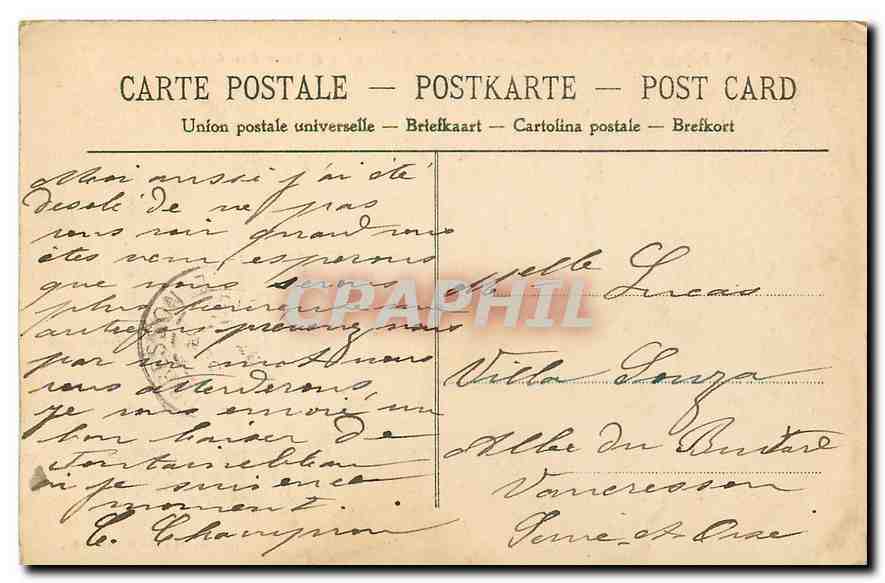 CARTE POSTALE — POSTKARTE — POST CARD
Union postale universelle — Briefkaart — Cartolina postale — Brefkort
Moi aussi j'ai été
desolé de ne pas
vous voir quand vous
êtes venu, esperons
que nous serons
plus heureux une
autre fois prevenez nous
par un mot nous
vous attenderons,
je vous envoie un
bon baiser de
Fontainebleau
ou je suis en ce
moment.
E. Champion
Melle Lucas
Villa Souza
Allee du Butard
Vaucresson
Seine et Oise
CPAPHIL